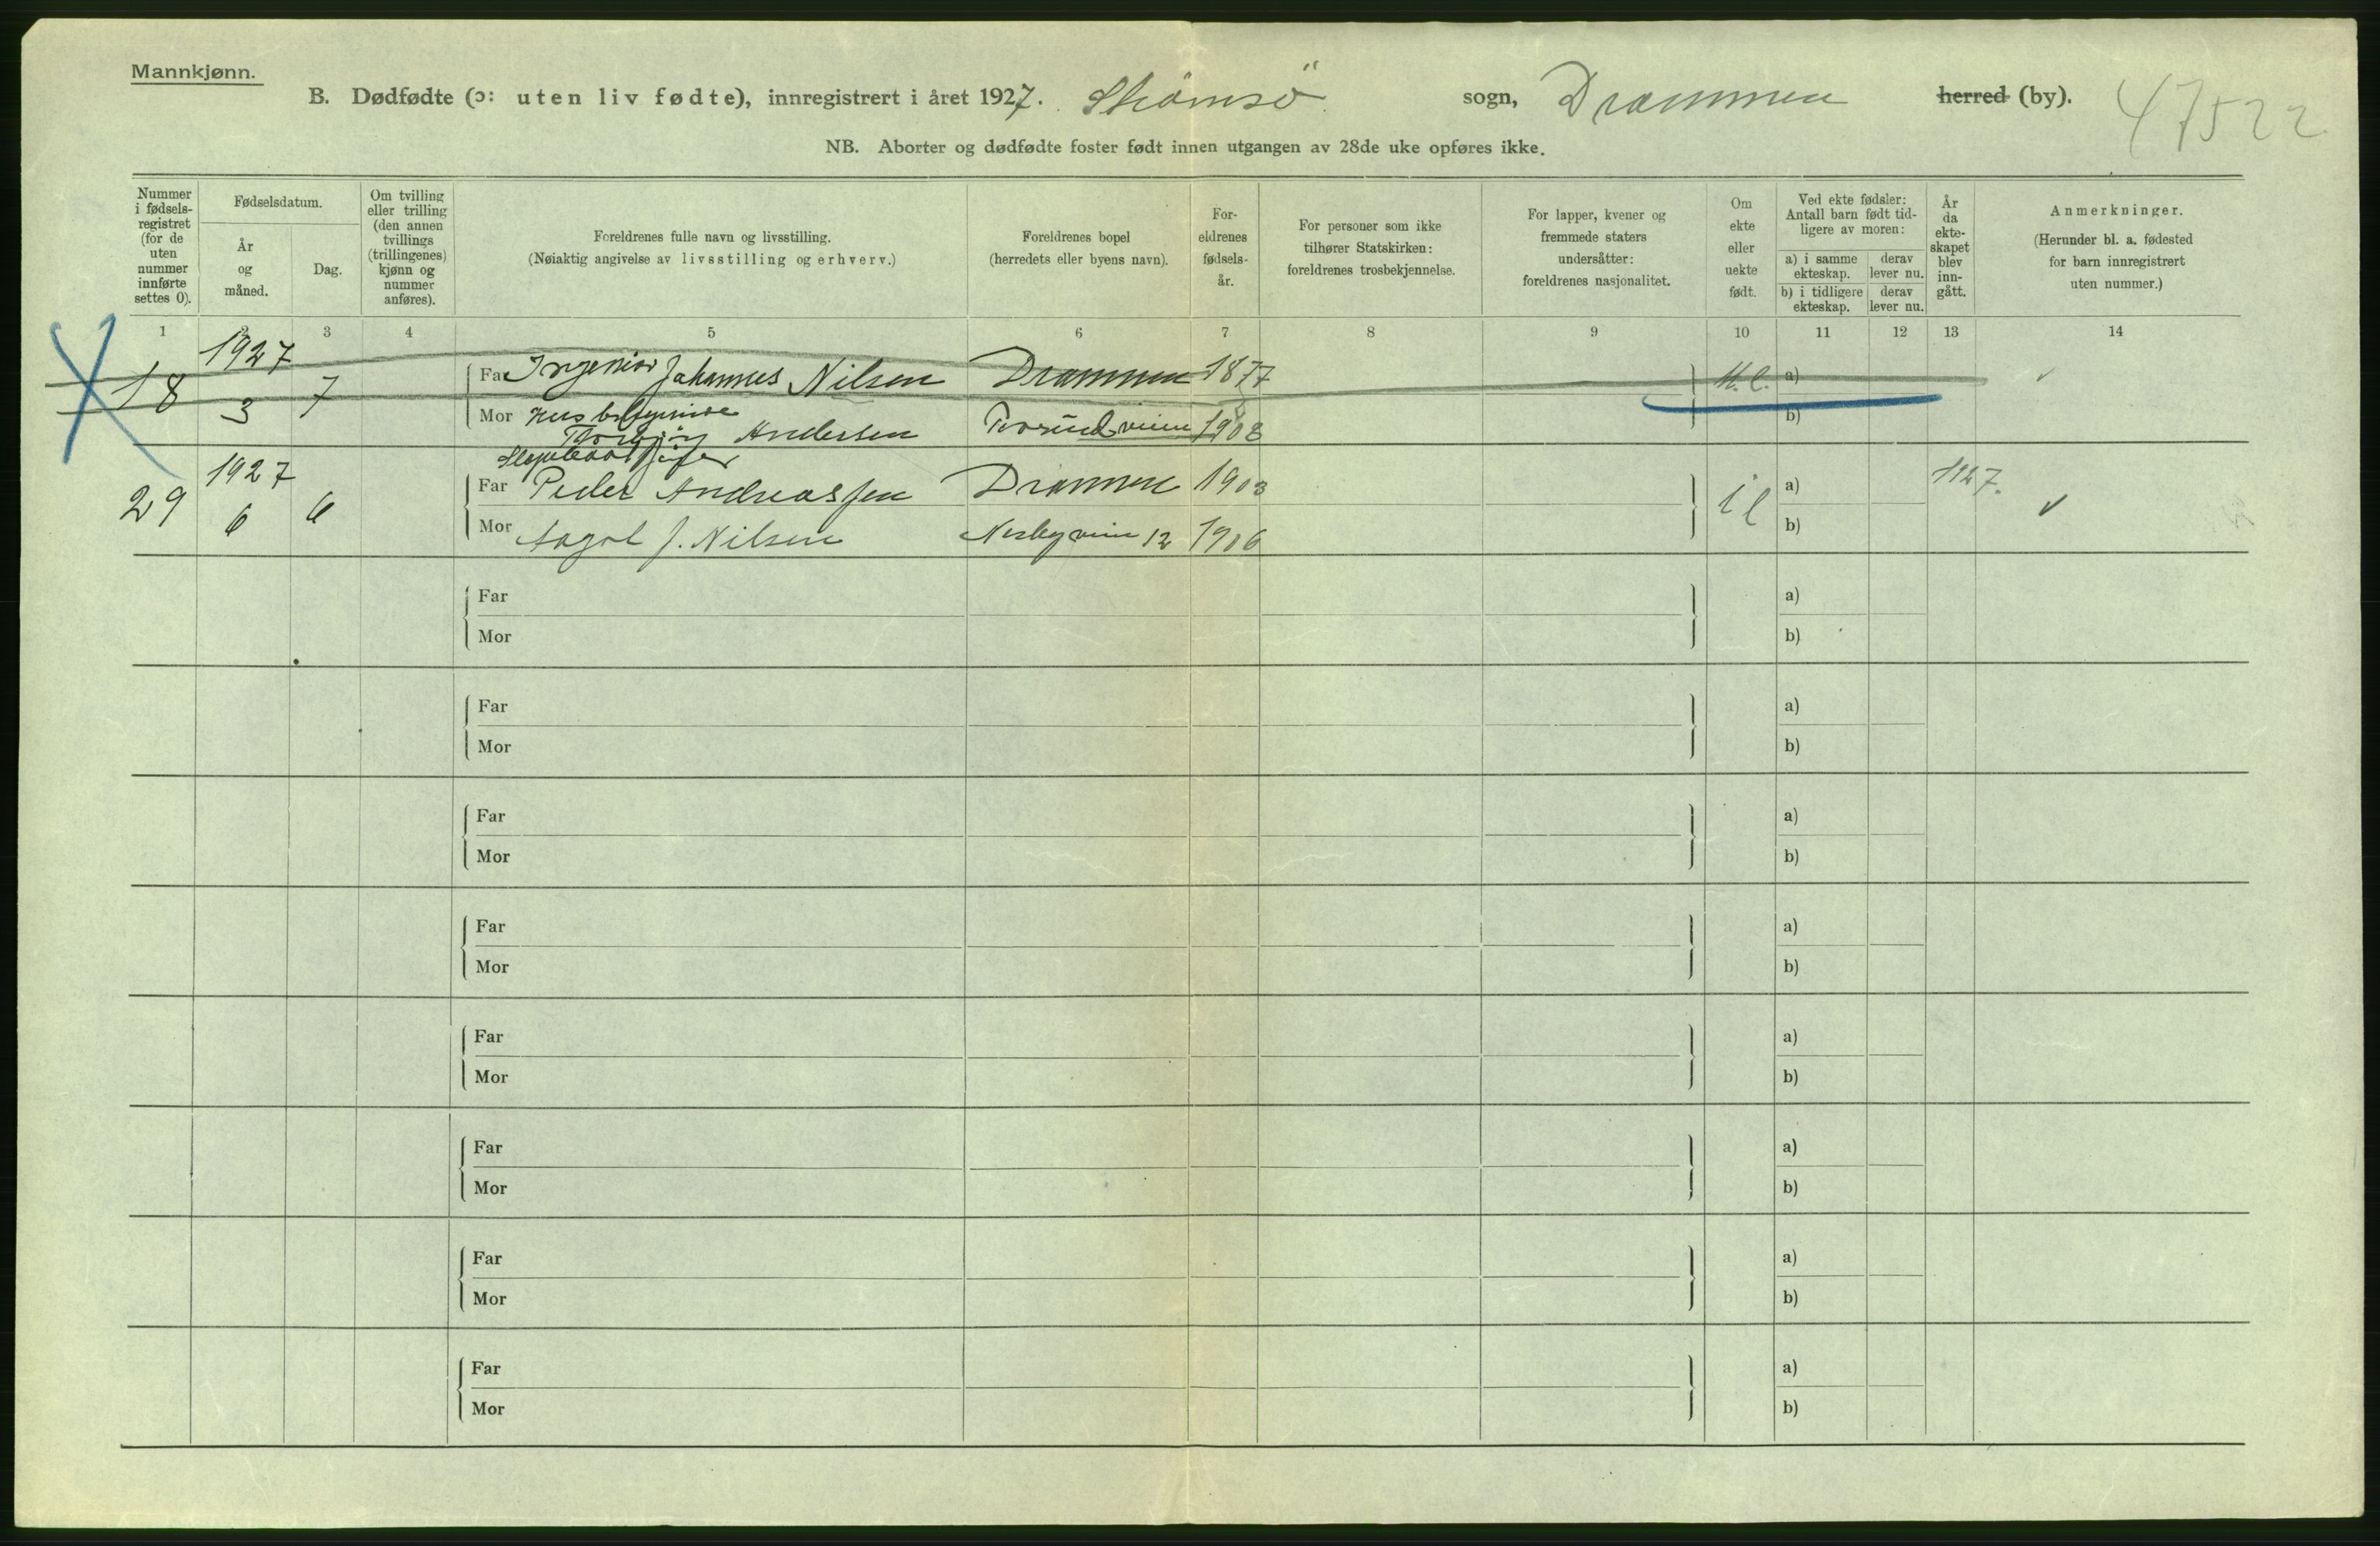 Mannkjønn.
B. Dødfødte (ɔ: uten liv fødte), innregistrert i året 1927. Strömsö sogn, Drammen herred (by).
47522
NB. Aborter og dødfødte foster født innen utgangen av 28de uke opføres ikke.
Nummer i fødsels-registret (for de uten nummer innførte settes 0).
Fødselsdatum.
År og måned.
Dag.
Om tvilling eller trilling (den annen tvillings (trillingenes) kjønn og nummer anføres).
Foreldrenes fulle navn og livsstilling.
(Nøiaktig angivelse av livsstilling og erhverv.)
Foreldrenes bopel
(herredets eller byens navn).
For-eldrenes fødsels-år.
For personer som ikke tilhører Statskirken: foreldrenes trosbekjennelse.
For lapper, kvener og fremmede staters undersåtter: foreldrenes nasjonalitet.
Om ekte eller uekte født.
Ved ekte fødsler: Antall barn født tid-ligere av moren:
a) i samme ekteskap.
derav lever nu.
b) i tidligere ekteskap.
derav lever nu.
År da ekte-skapet blev inn-gått.
Anmerkninger.
(Herunder bl. a. fødested for barn innregistrert uten nummer.)
1 2 3 4 5 6 7 8 9 10 11 12 13 14
18 1927 3 7
Far Ingeniør Johannes Nilsen Drammen 1877 a)
Mor Andersen 1908 b)
29 1927 6 6
Far Peder Andreassen Drammen 1903 a) 1927.
Mor J. Nilsen 12 1906 b)
Far a)
Mor b)
Far a)
Mor b)
Far a)
Mor b)
Far a)
Mor b)
Far a)
Mor b)
Far a)
Mor b)
Far a)
Mor b)
Far a)
Mor b)